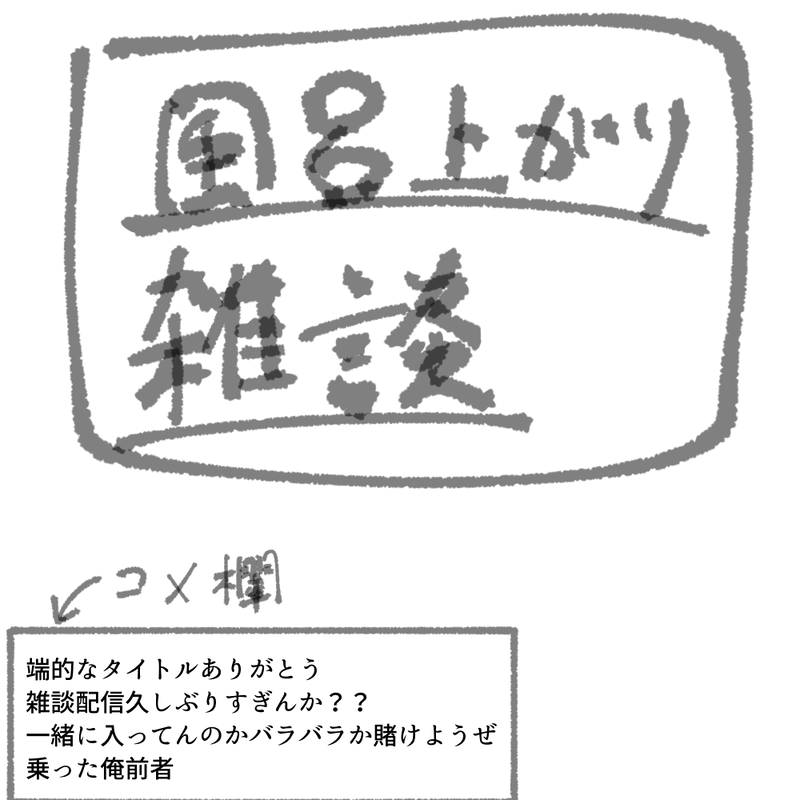 風呂上がり
雑談
コメ欄
端的なタイトルありがとう
雑談配信久しぶりすぎんか？？
一緒に入ってんのかバラバラか賭けようぜ
乗った俺前者